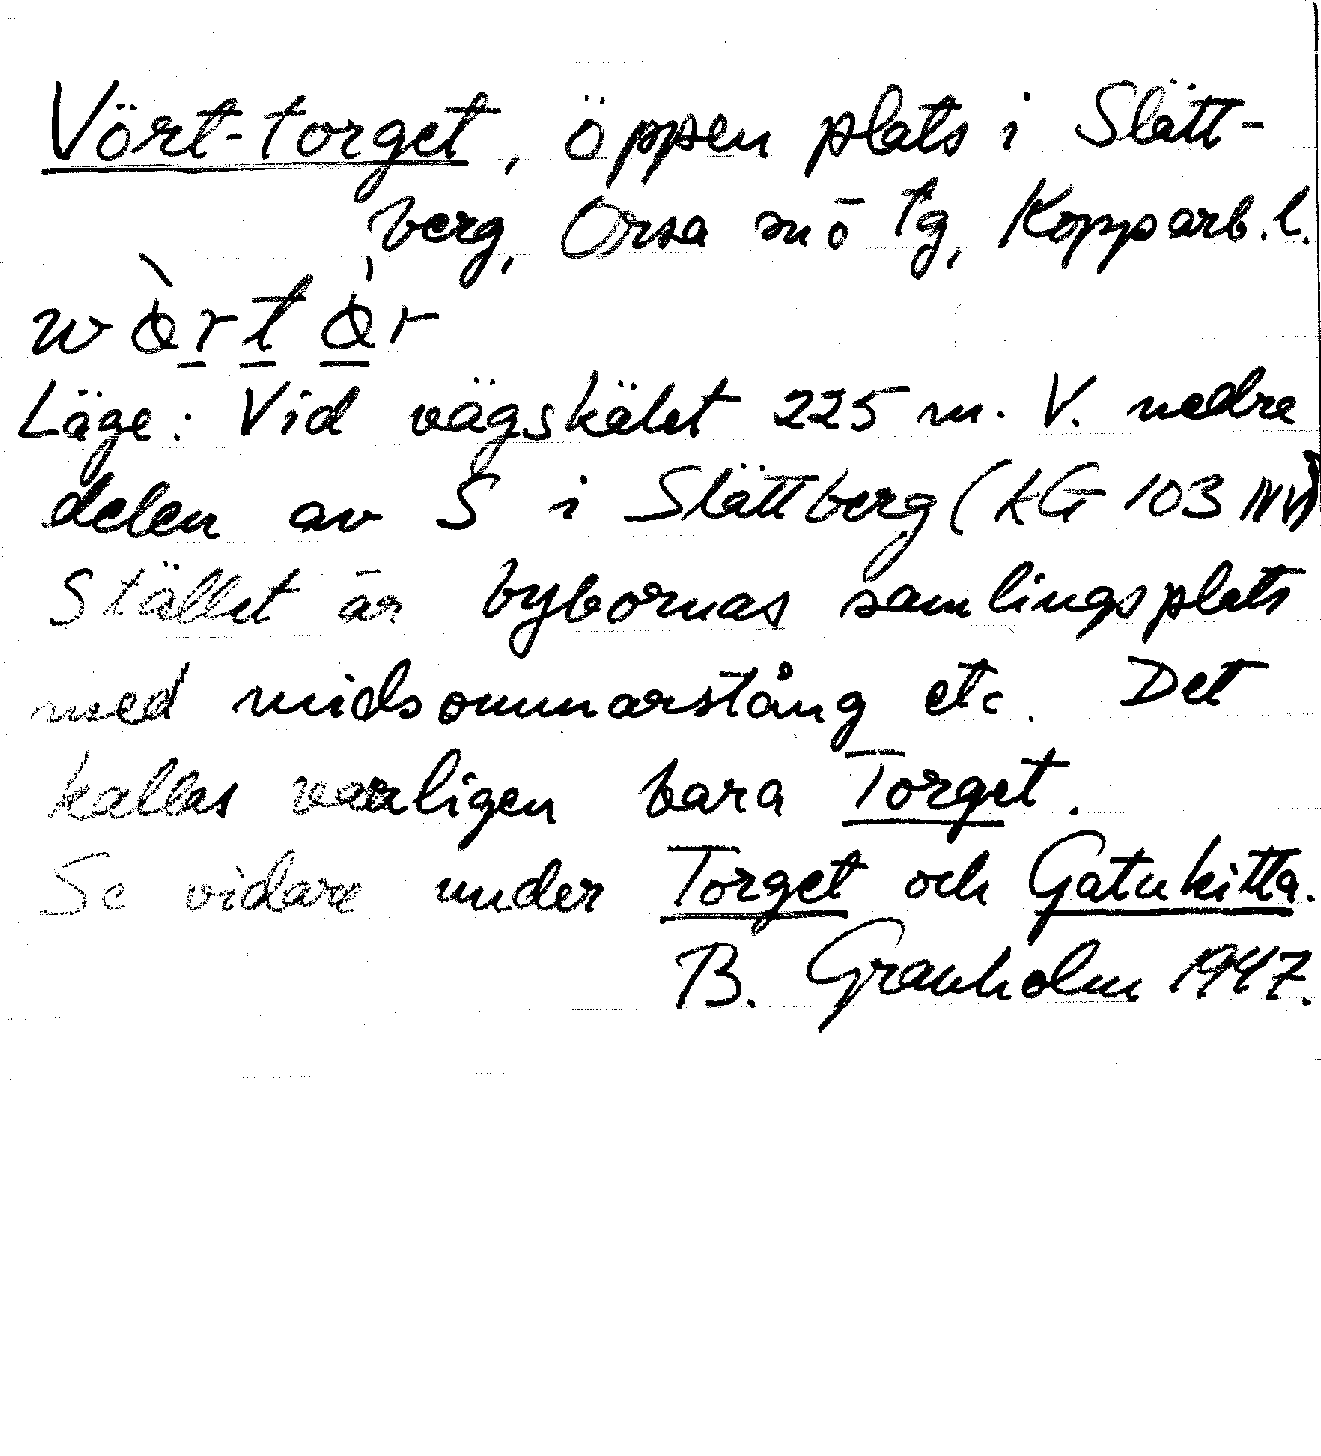 Vört-torget, öppen plats i Slätt-
berg, Orsa sn ō tg, Kopparb. l.
Läge: Vid vägskälet 225 m. V. nedre
delen av S i Slättberg (kG 103 NV)
Stället är bybornas samlingsplats
med midsommarstång etc. Det
kallas vanligen bara Torget.
Se vidare under Torget och Gatukitta.
B. Granholm 1947.